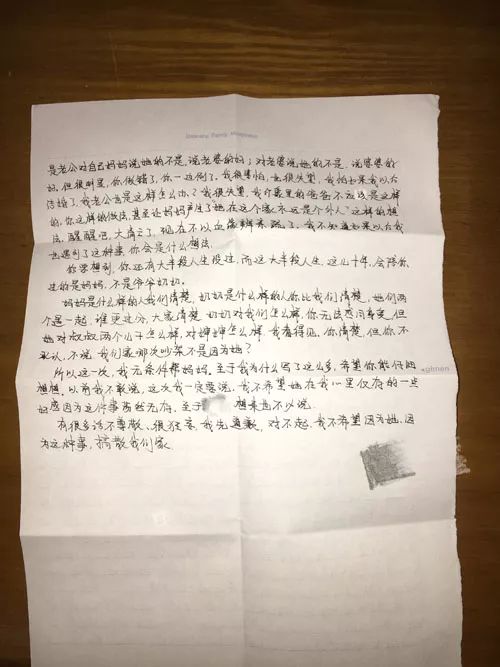 是老公对自己妈妈说她的不是,说老婆的好;对老婆说她的不是,说婆婆的
好,但很明显,你做错了,你一边倒了。我很害怕,也很失望,我怕如果我以后
结婚了,我老公也是这样怎么办?我很失望,我印象里的爸爸不应该是这样
的,你这样的做法,甚至让妈妈产生了她在这个家永远是个外人"这样的想
法,醒醒吧,大清亡了,现在不以血缘辨亲疏了。我不知道如果以后我
也遇到了这种事,你会是什么想法。
你要想到,你还有大半段人生没过,而这大半段人生,这几十年,会陪你
过的是妈妈,不是爷爷奶奶。
妈妈是什么样的人我们清楚,奶奶是什么样的人你比我们清楚,她们两
个遇一起,谁更过分,大家清楚,奶奶对我们怎么样,你无法感同身受,但
她对叔叔两个儿子怎么样,对婶婶怎么样,我看得见,你清楚,但你不
承认,不说,我们家那次吵架不是因为她?
所以这一次,我无条件帮妈妈。至于我为什么写了这么多,希望你能仔细
想想。以前我不敢说,这次我一定要说,我不希望她在我心里仅有的一点
好感因为这件事荡然无存,至于 想来也不必说。
有很多话不尊敬、很狂妄,我先道歉,对不起,我不希望因为她,因
为这种事,搞散我们家。